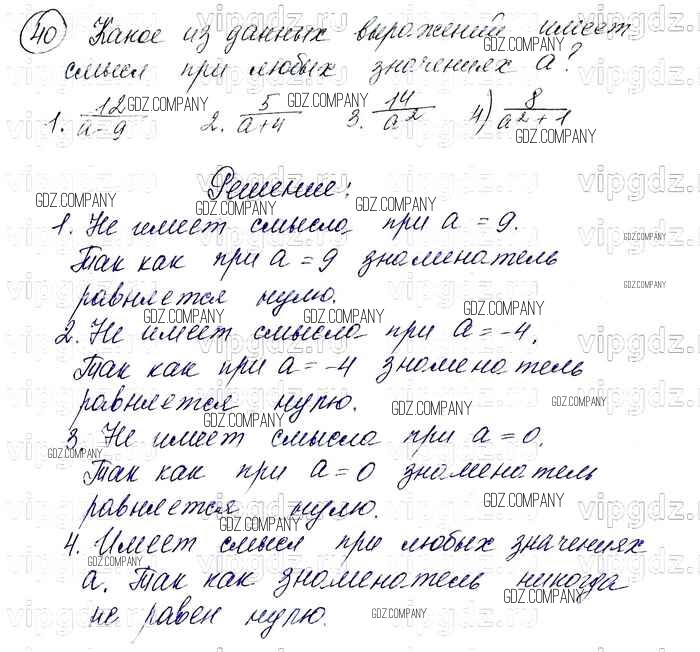 40 Какое из данных выражений имеет
смысл при любых значениях a?
1. 12/(a-9) 2. 5/(a+4) 3. 14/a² 4) 8/(a²+1)
Решение:
1. Не имеет смысла при a = 9.
Так как при a = 9 знаменатель
равняется нулю.
2. Не имеет смысла при a = -4.
Так как при a = -4 знаменатель
равняется нулю.
3. Не имеет смысла при a = 0.
Так как при a = 0 знаменатель
равняется нулю.
4. Имеет смысл при любых значениях
a. Так как знаменатель никогда
не равен нулю.
GDZ.COMPANY
vipgdz.ru